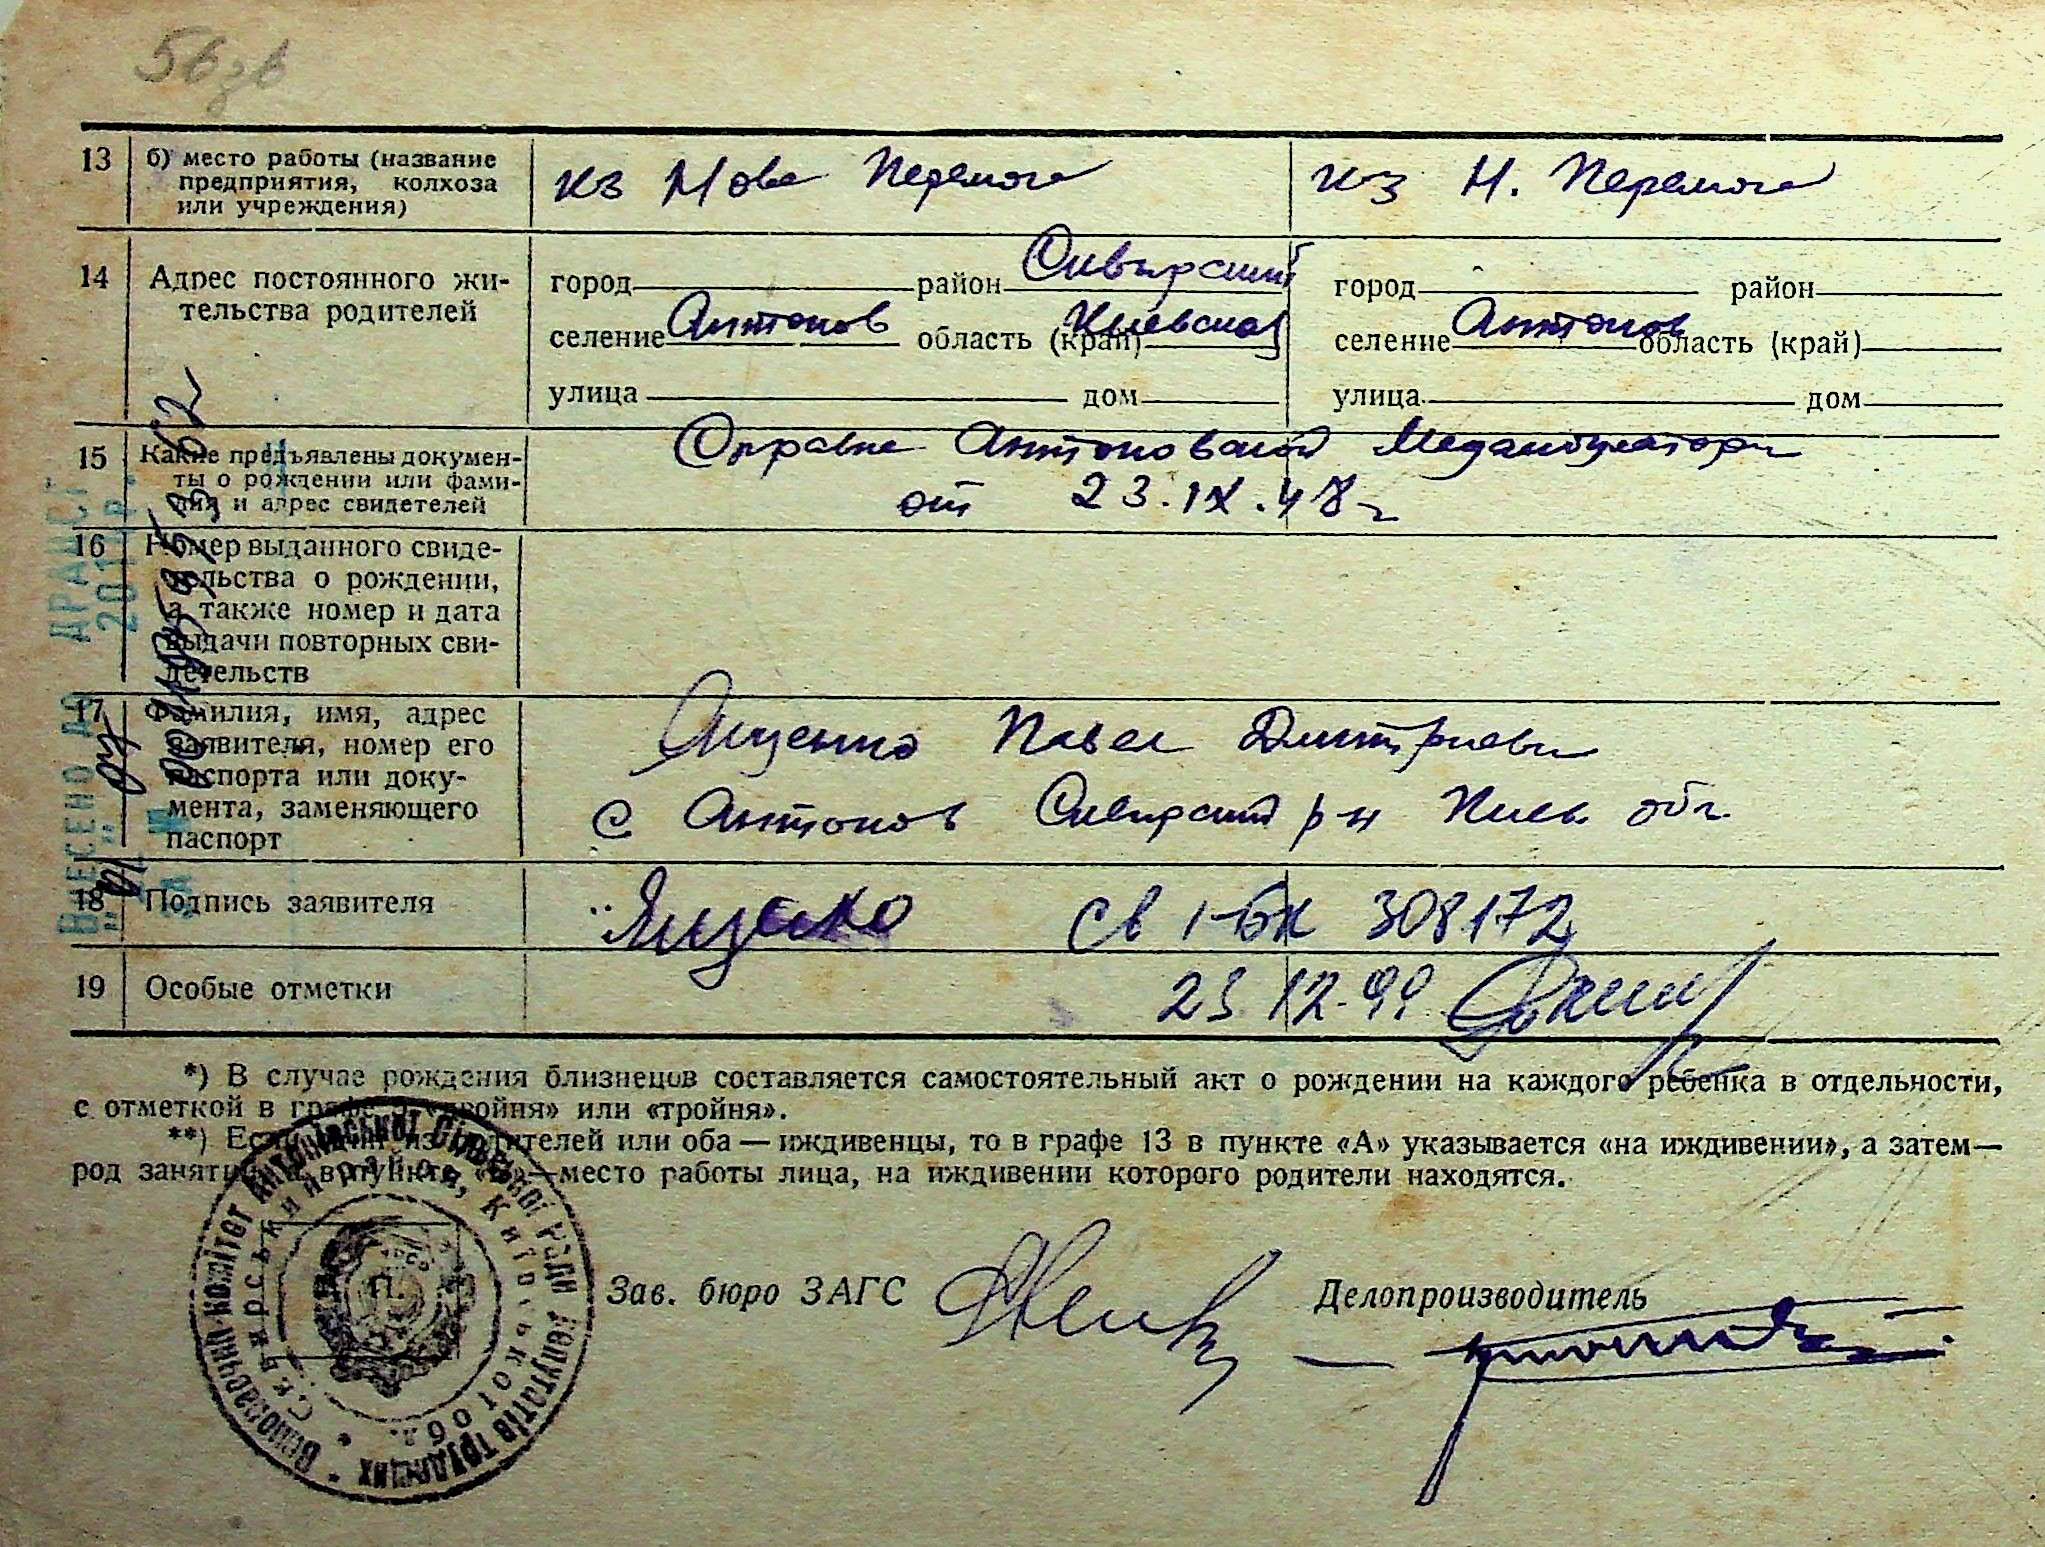 56зв
13 б) место работы (название предприятия, колхоза или учреждения) кз Нова Перемога кз Н. Перемога
14 Адрес постоянного жительства родителей
город район Сквирский город район
селение Антонов область (край) Киевская селение Антонов область (край)
улица дом улица дом
15 Какие предъявлены документы о рождении или фамилия и адрес свидетелей
Справка Антоновской Медамбулатори
от 23.IX.48 г
16 Номер выданного свидетельства о рождении, а также номер и дата выдачи повторных свидетельств
17 Фамилия, имя, адрес заявителя, номер его паспорта или документа, заменяющего паспорт
Яценко Павел Дмитриевич
с Антонов Сквирский р-н Киев обл.
18 Подпись заявителя Яценко св I-БК 308172
19 Особые отметки 23 12.99
ВНЕСЕНО ДО ДРАЦСГ
201 р.
*) В случае рождения близнецов составляется самостоятельный акт о рождении на каждого ребенка в отдельности,
с отметкой в графе «двойня» или «тройня».
**) Если один из родителей или оба — иждивенцы, то в графе 13 в пункте «А» указывается «на иждивении», а затем—
род занятий, а в пункте «Б»—место работы лица, на иждивении которого родители находятся.
Виконавчий комітет Антонівської сільської Ради депутатів трудящих
Сквирський район, Київської обл.
Зав. бюро ЗАГС Делопроизводитель